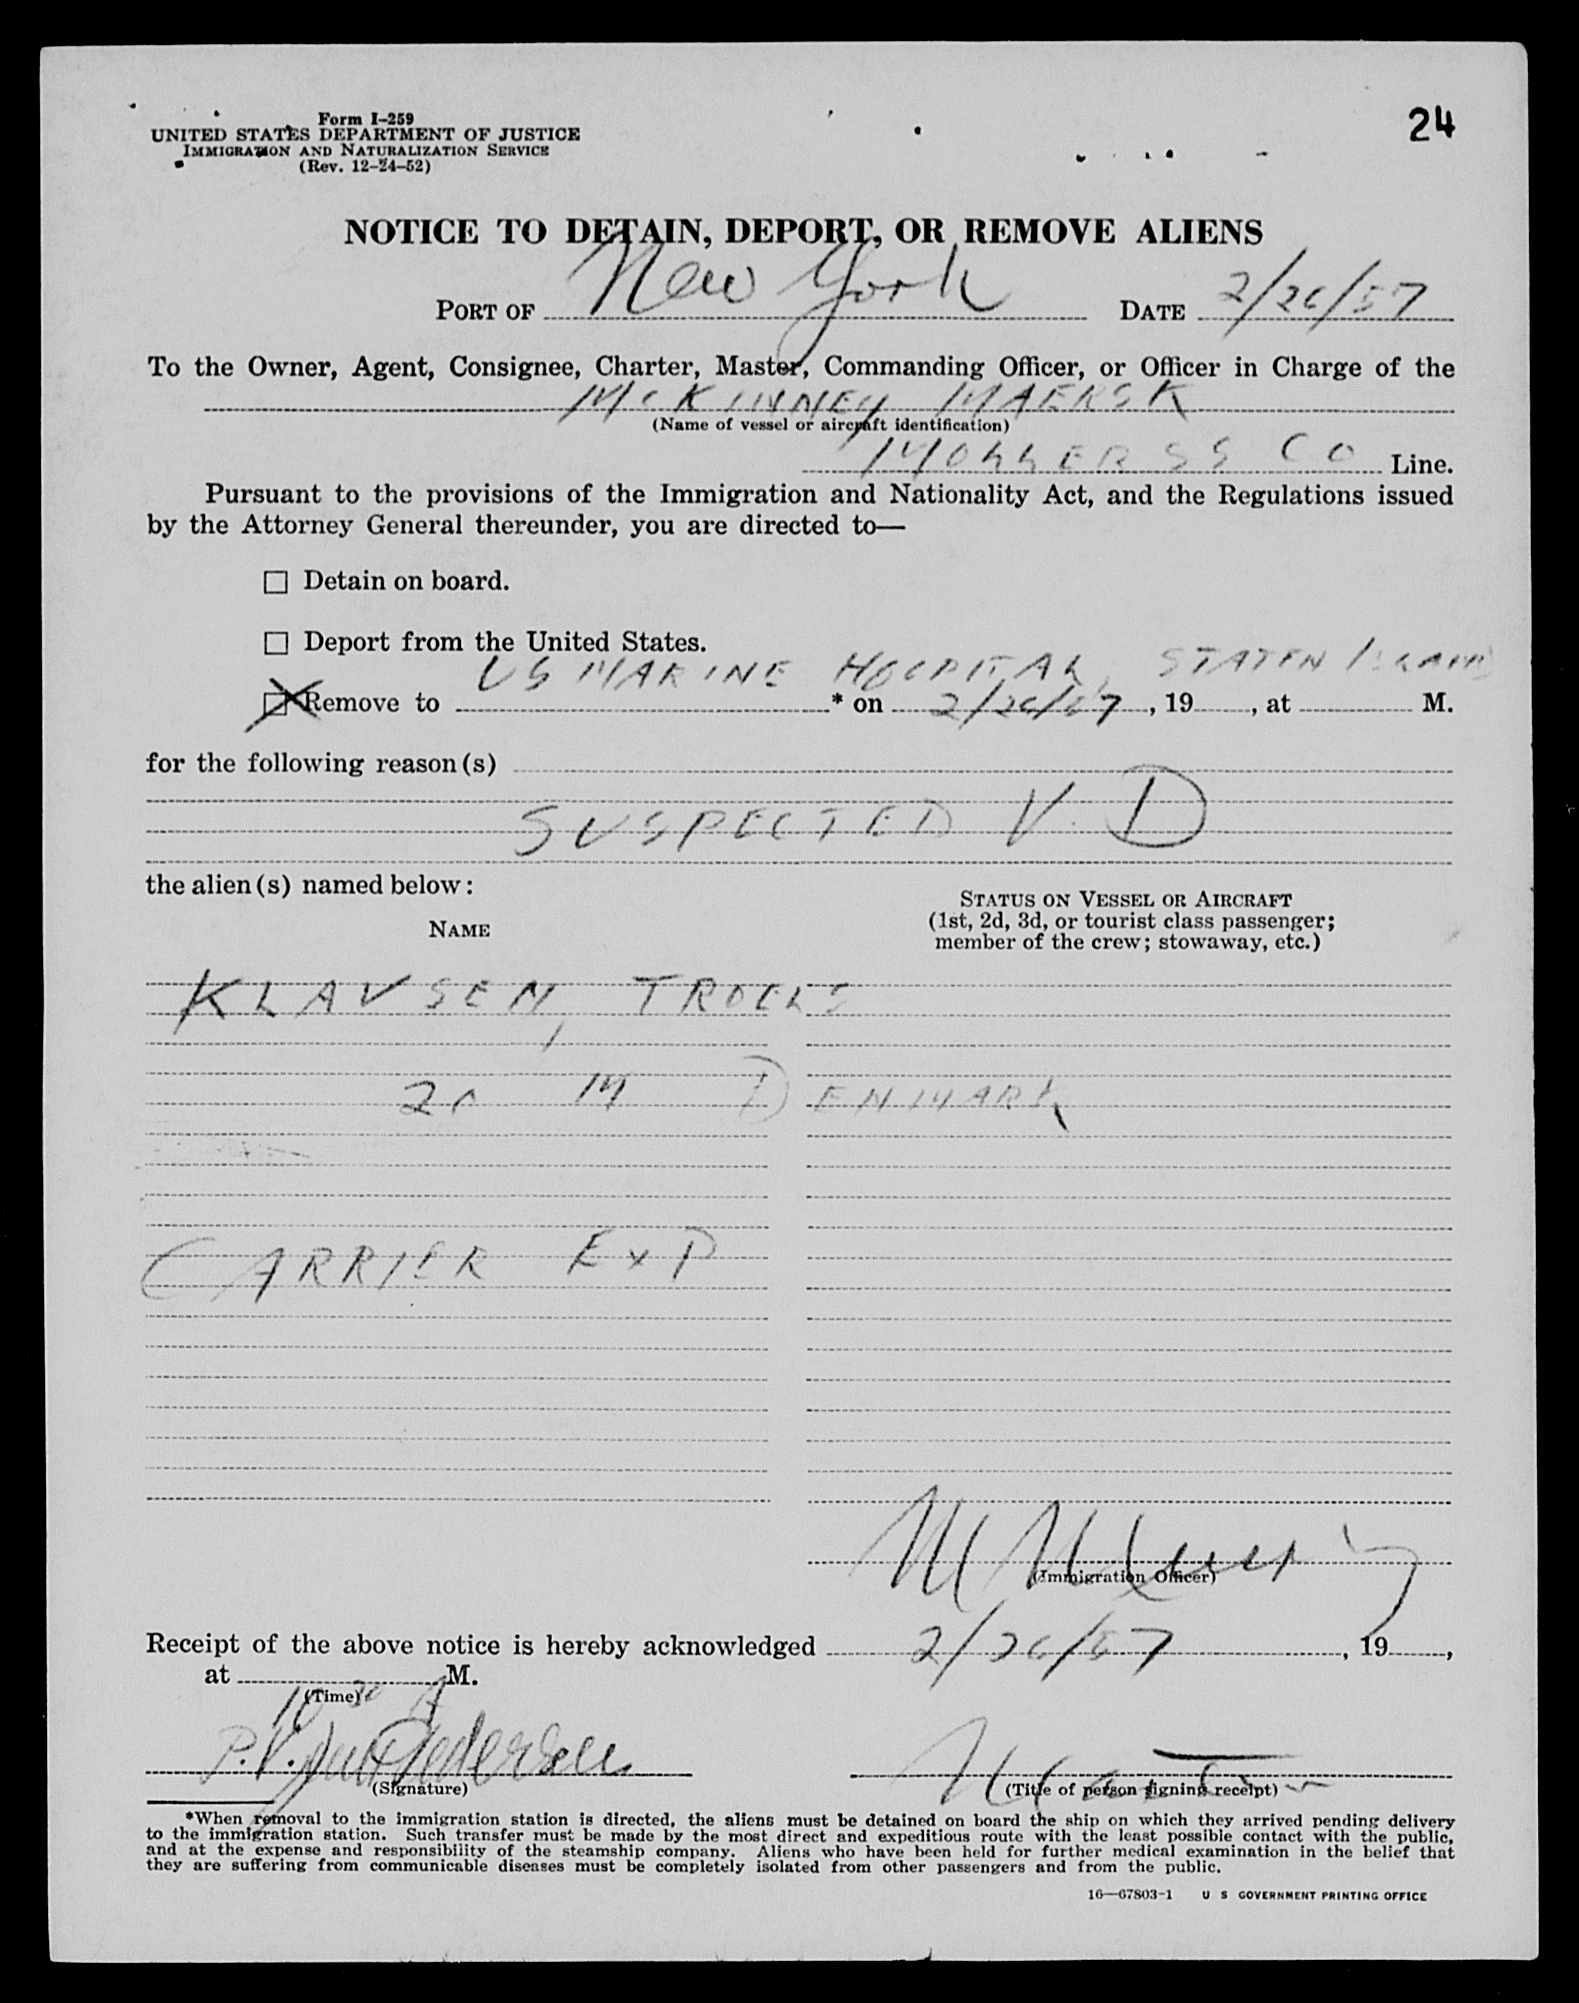 24
Form I-259
UNITED STATES DEPARTMENT OF JUSTICE
IMMIGRATION AND NATURALIZATION SERVICE
(Rev. 12-24-52)
NOTICE TO DETAIN, DEPORT, OR REMOVE ALIENS
PORT OF New York DATE 2/26/57
To the Owner, Agent, Consignee, Charter, Master, Commanding Officer, or Officer in Charge of the
McKINNEY MAERSK
(Name of vessel or aircraft identification)
MOLLER SS CO Line.
Pursuant to the provisions of the Immigration and Nationality Act, and the Regulations issued
by the Attorney General thereunder, you are directed to—
☐ Detain on board.
☐ Deport from the United States.
US MARINE HOSPITAL, STATEN ISLAND
☒ Remove to * on 2/26/57, 19, at M.
for the following reason(s)
SUSPECTED V. D
the alien(s) named below:
NAME
STATUS ON VESSEL OR AIRCRAFT
(1st, 2d, 3d, or tourist class passenger;
member of the crew; stowaway, etc.)
KLAUSEN, TROELS
M DENMARK
CARRIER EXP
(Immigration Officer)
Receipt of the above notice is hereby acknowledged 2/26/57, 19,
at M.
(Time)
10 30 A
P.V. Pedersen
(Signature)
(Title of person signing receipt)
*When removal to the immigration station is directed, the aliens must be detained on board the ship on which they arrived pending delivery
to the immigration station. Such transfer must be made by the most direct and expeditious route with the least possible contact with the public,
and at the expense and responsibility of the steamship company. Aliens who have been held for further medical examination in the belief that
they are suffering from communicable diseases must be completely isolated from other passengers and from the public.
16—67803-1 U S GOVERNMENT PRINTING OFFICE